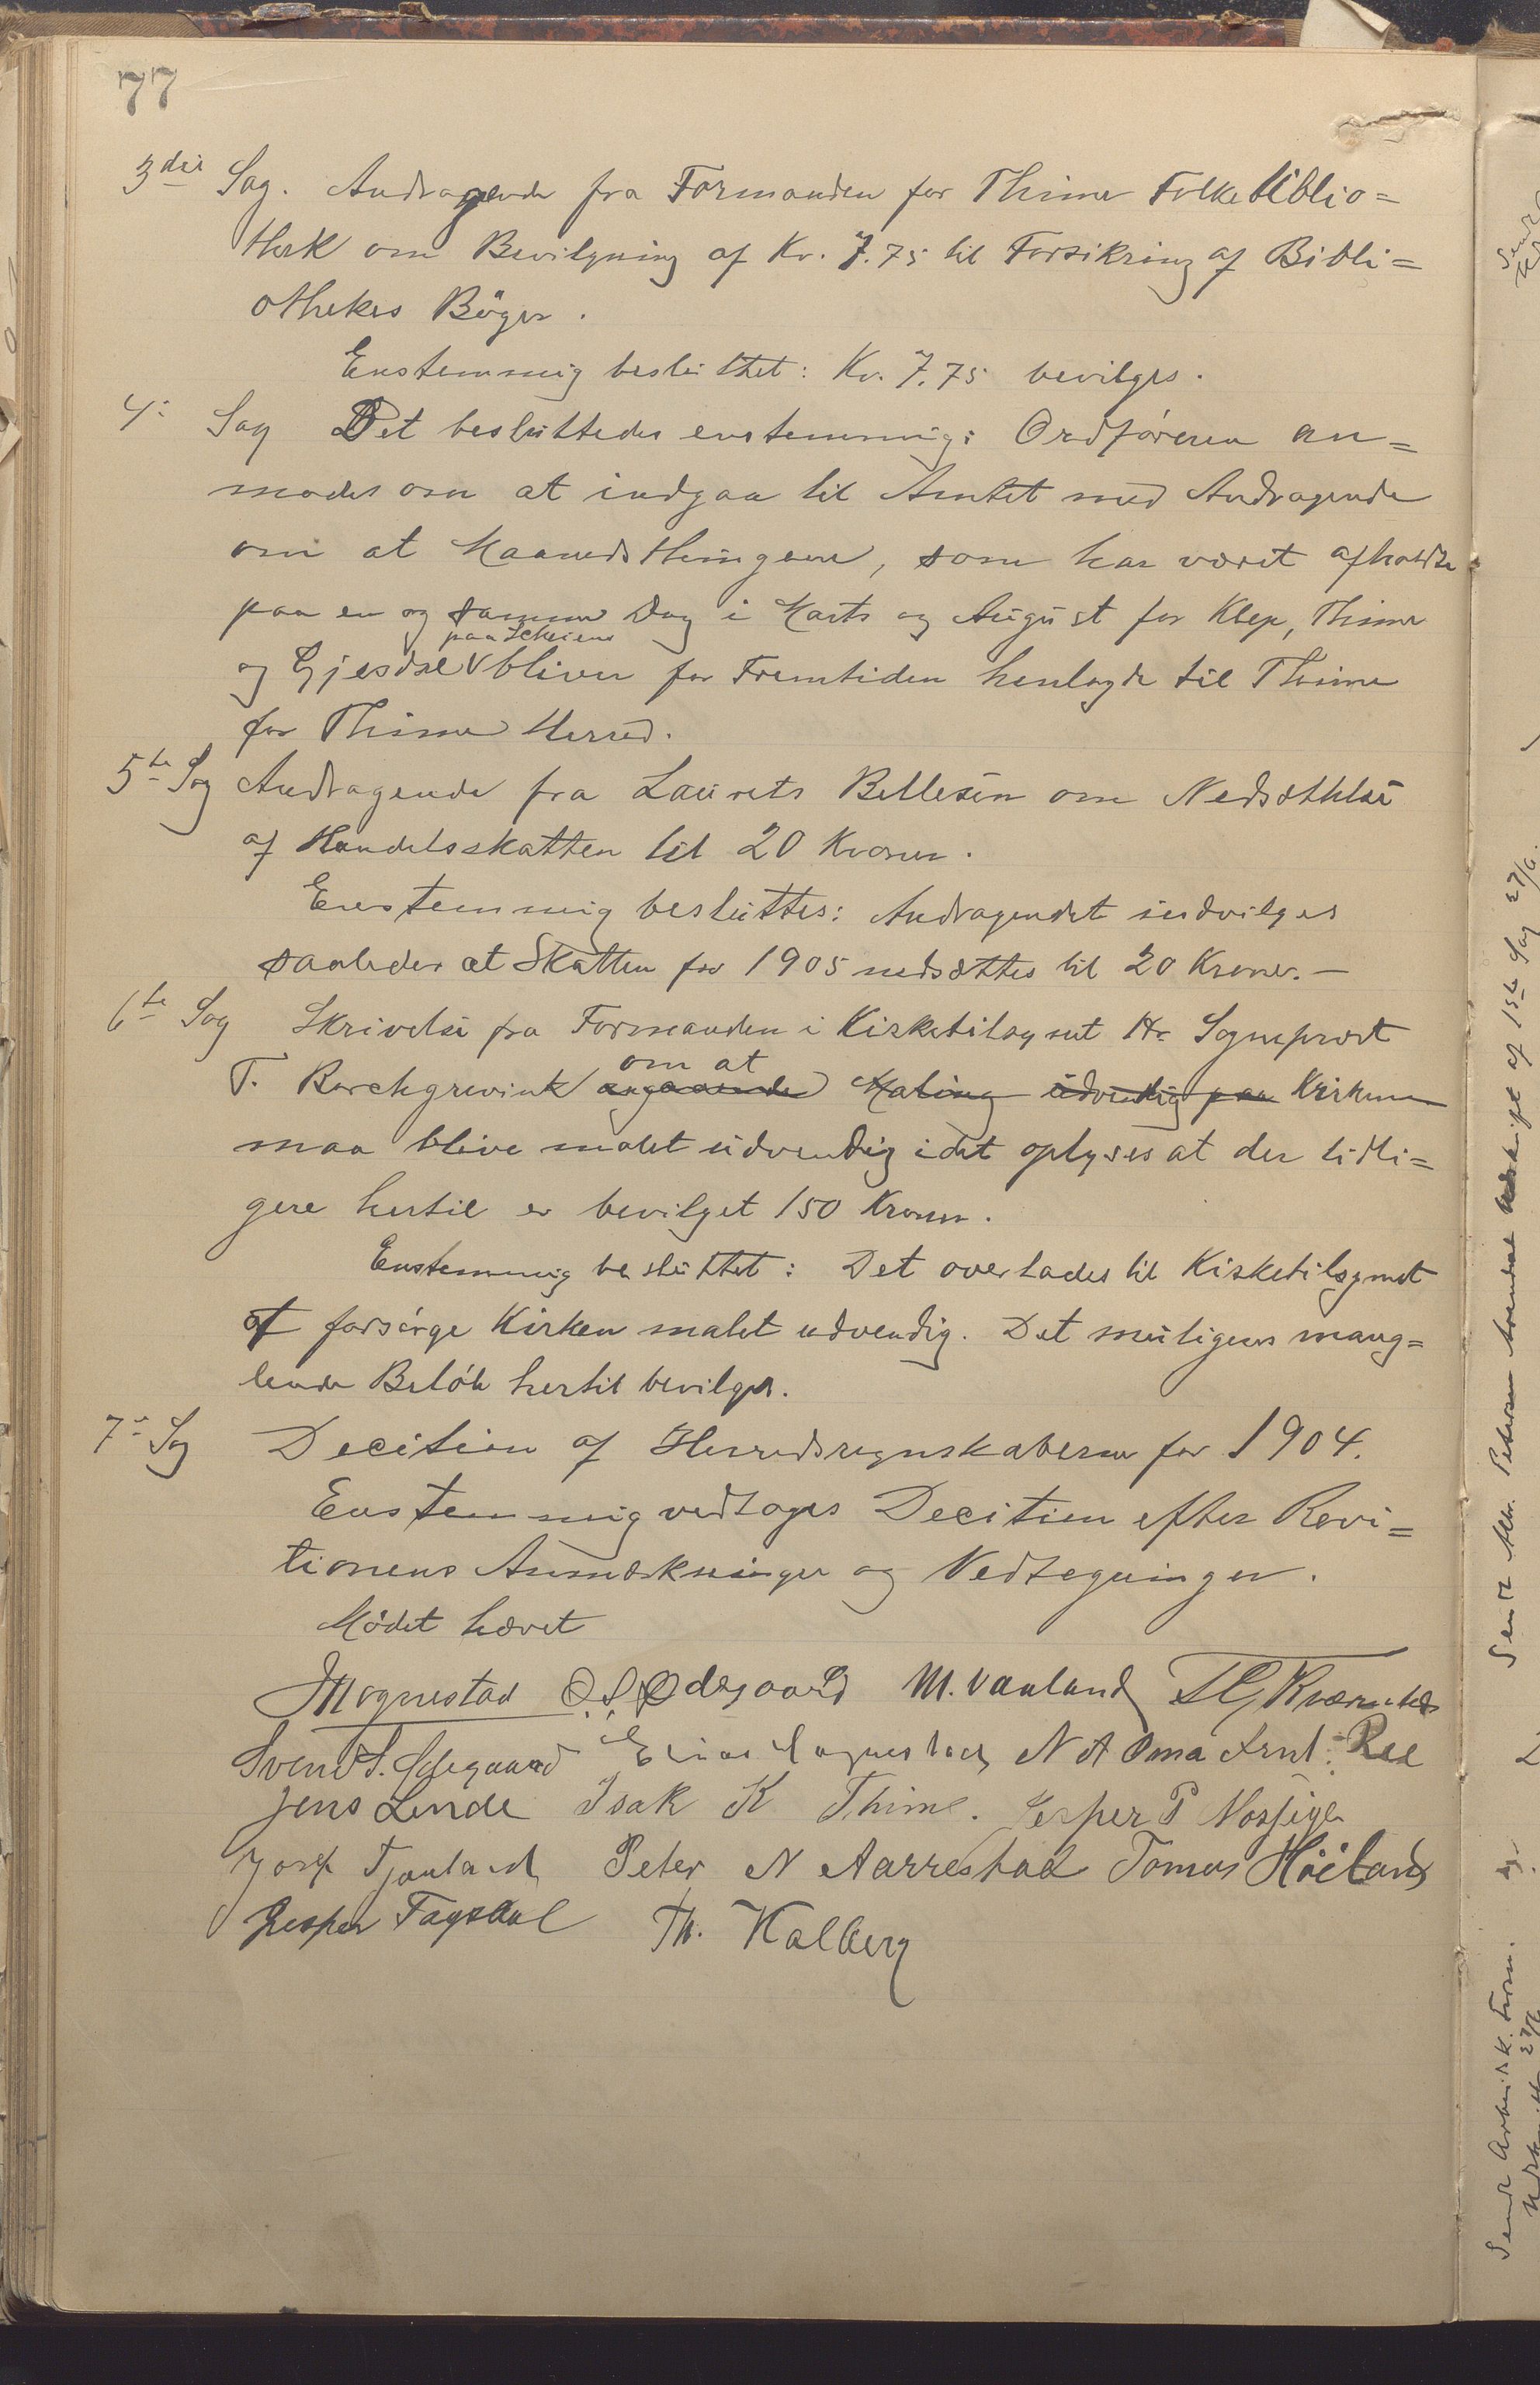 77
3die Sag. Andragende fra Formanden for Thime Folkebiblio=
thek om Bevilgning af Kr. 7.75 til Forsikring af Bibli=
othekes Böger.
Enstemmig besluttet: Kr. 7.75 bevilges.
4: Sag Det besluttedes enstemmig: Ordføreren an=
modes om at indgaa til Amtet med Andragende
om at Maanedsthingene, som har været afholdte
paa en og samme Dag i Marts og August for Klep, Thime
paa Skeiene
og Gjesdal V bliver for Fremtiden henlagde til Thime
for Thime Herred.
5te Sag Andragende fra Laurets Bellesen om Nedsættelse
af Handelsskatten til 20 Kroner.
Enstemmig besluttes: Andragendet indvilges
saaledes at Skatten for 1905 nedsættes til 20 Kroner. —
6te Sag Skrivelse fra Formanden i Kirketilsynet Hr Sogneprest
om at
T. Borchgrevink angaaende Maling udvendig paa Kirkene
maa blive malet udvendig idet oplyses at der tidli=
gere hertil er bevilget 150 Kroner.
Enstemmig besluttet: Det overlades til Kirketilsynet
at forsörge Kirken malet udvendig. Det muligens mang=
lende Belöb hertil bevilges.
7de Sag Decition af Herredsregnskaberne for 1904.
Enstemmig vedtoges Decition efter Revi=
tionens Anmærkninger og Vedtegninger.
Mödet hævet
Mognestad O. S. Ødegaard M. Vauland
Svend S. Ødegaard Einar Mognestad N A Oma
Jens Linde Isak K Thime. Jesper P Nossige
Josef Tjauland Peter N Aarrestad Tomas Höiland
Jesper Fagsdal Th. Kalberg
Sendt Petersen af 1ste Sag 27/6.
Sendt Arbeidsk. Form.